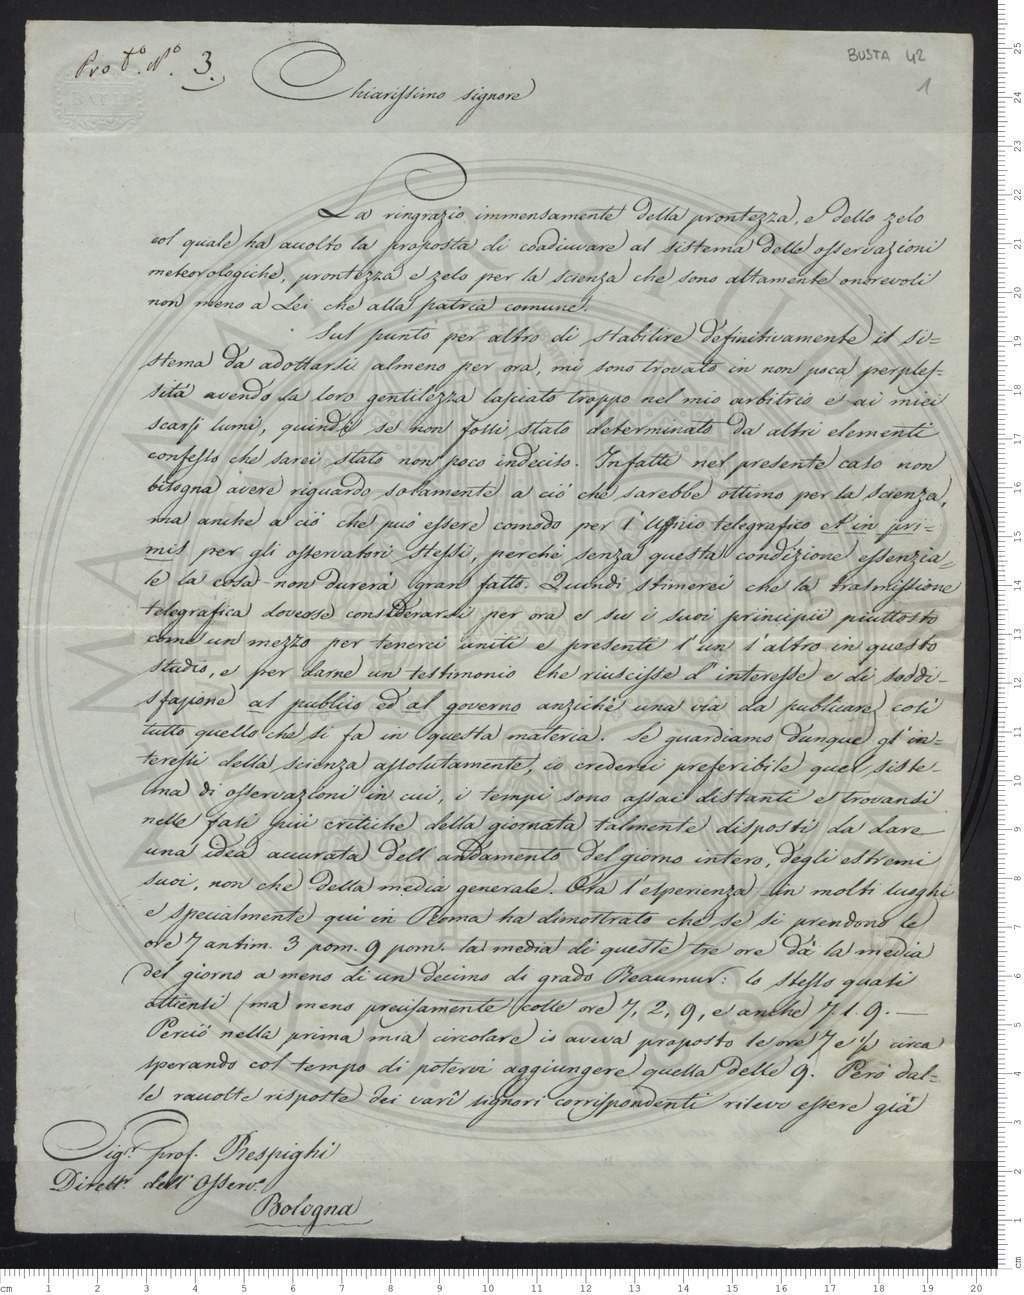 Proto. No. 3.
BUSTA 42
1
BATH
Chiarissimo signore
La ringrazio immensamente della prontezza, e dello zelo
col quale ha accolto la proposta di coadiuvare al sistema delle osservazioni
meteorologiche, prontezza e zelo per la scienza che sono altamente onorevoli
non meno a Lei che alla patria comune.
Sul punto per altro di stabilire definitivamente il si=
stema da adottarsi almeno per ora, mi sono trovato in non poca perples-
sità avendo la loro gentilezza lasciato troppo nel mio arbitrio e ai miei
scarsi lumi, quindi se non fossi stato determinato da altri elementi
confesso che sarei stato non poco indeciso. Infatti nel presente caso non
bisogna avere riguardo solamente a ciò che sarebbe ottimo per la scienza,
ma anche a ciò che può essere comodo per l'Uffizio telegrafico et in pri=
mis per gli osservatori stessi, perchè senza questa condizione essenzia=
le la cosa non durerà gran fatto. Quindi stimerei che la trasmissione
telegrafica dovesse considerarsi per ora e su i suoi principii piuttosto
come un mezzo per tenerci uniti e presenti l'un l'altro in questo
studio, e per darne un testimonio che riuscisse d'interesse e di soddi-
sfazione al publico ed al governo anzichè una via da publicare così
tutto quello che si fa in questa materia. Se guardiamo dunque gl'in=
teressi della scienza assolutamente, io crederei preferibile quel siste-
ma di osservazioni in cui, i tempi sono assai distanti e trovansi
nelle fasi più critiche della giornata talmente disposti da dare
una idea accurata dell'andamento del giorno intero, degli estremi
suoi, non che della media generale. Ora l'esperienza in molti luoghi
e specialmente qui in Roma ha dimostrato che se si prendono le
ore 7 antim. 3 pom. 9 pom. la media di queste tre ore dà la media
del giorno a meno di un decimo di grado Reaumur: lo stesso quasi
ottiensi (ma meno precisamente) colle ore 7, 2, 9, e anche 7. 1. 9. —
Perciò nella prima mia circolare io aveva proposto le ore 7 e circa
sperando col tempo di potervi aggiungere quella delle 9. Però dal=
le raccolte risposte dei varî signori corrispondenti rilevo essere già
Sigr. prof. Respighi
Dirett. dell'Osserv.
Bologna